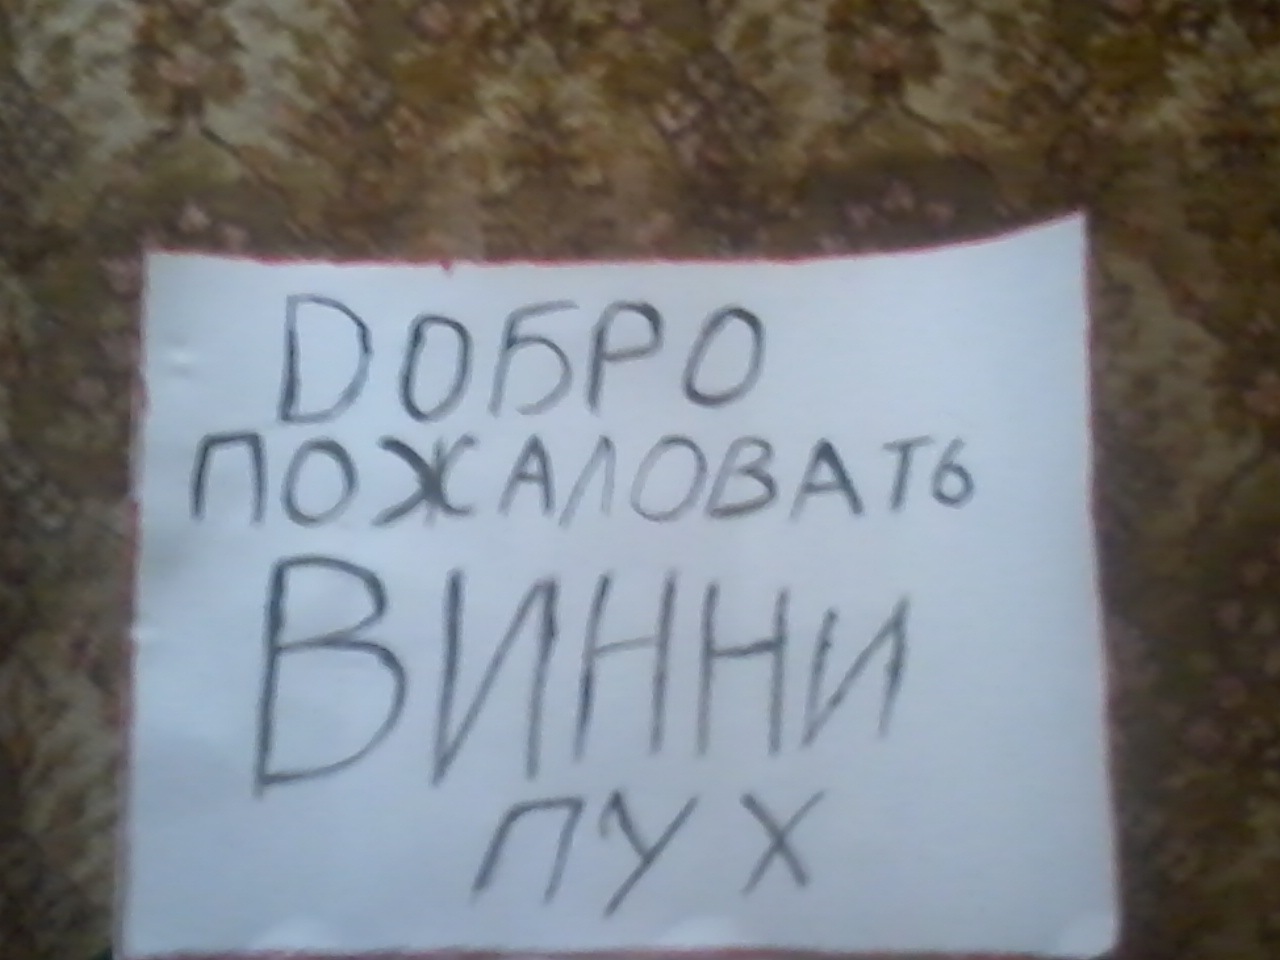 DОБРО
ПОЖАЛОВАТЬ
ВИННИ
ПУХ